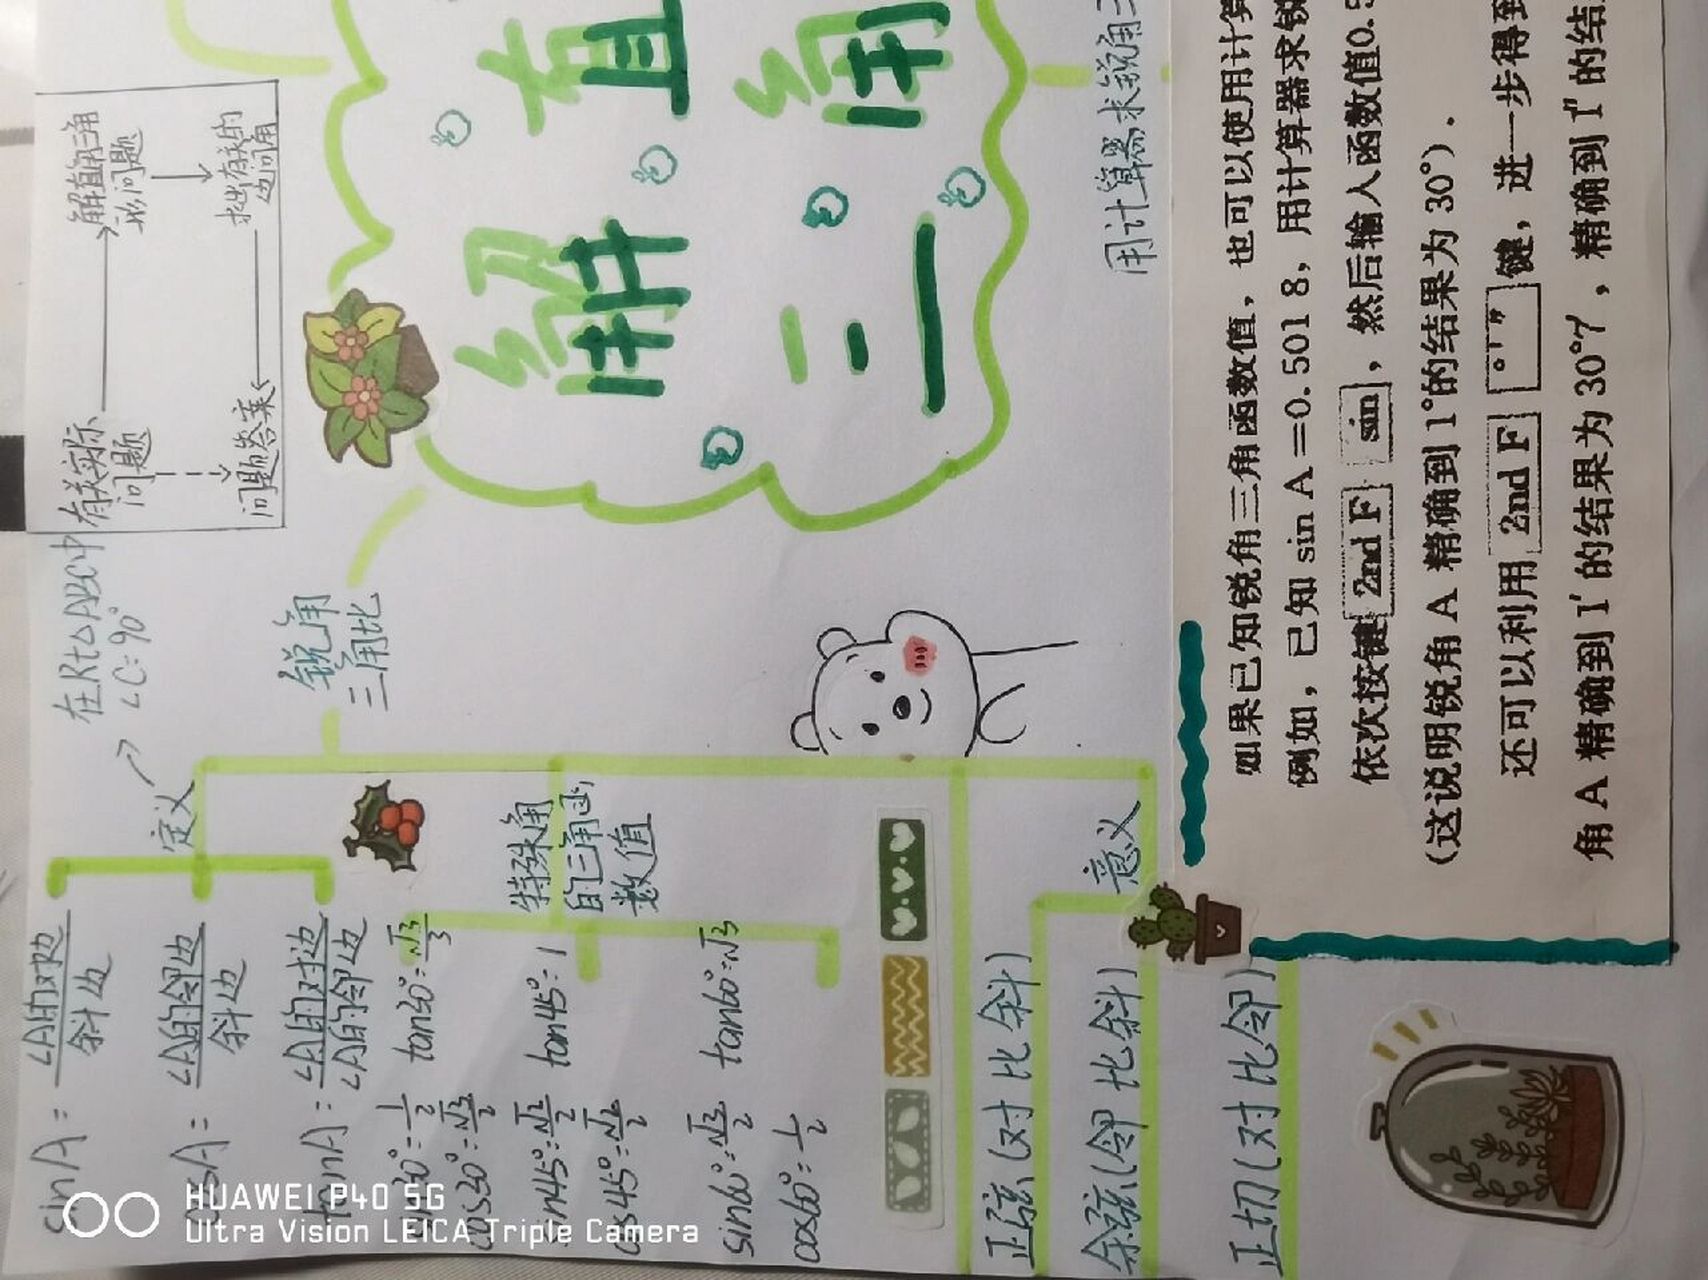 有关实际
问题
解直角三角
形问题
求出有关的
边问角
问题答案
在Rt△ABC中
∠C=90°
定义
锐角
三角比
sinA=∠A的对边
斜边
cosA=∠A的邻边
斜边
tanA:∠A的对边
∠A的邻边
特殊角
的三角函
数值
sin30°=1/2
cos30°=√3/2
tan30°=√3/3
sin45°=√2/2
cos45°=√2/2
tan45°=1
sin60°=√3/2
cos60°=1/2
tan60°=√3
意义
正弦(对比斜)
余弦(邻比斜)
正切(对比邻)
解直
三角
用计算器求锐角三
如果已知锐角三角函数值,也可以使用计算
例如,已知 sin A=0.501 8,用计算器求锐
依次按键 2nd F sin,然后输入函数值0.5
(这说明锐角 A 精确到 1°的结果为 30°).
还可以利用 2nd F °′″键,进一步得到
角 A 精确到 1′的结果为 30°7′,精确到 1″的结
HUAWEI P40 5G
Ultra Vision LEICA Triple Camera